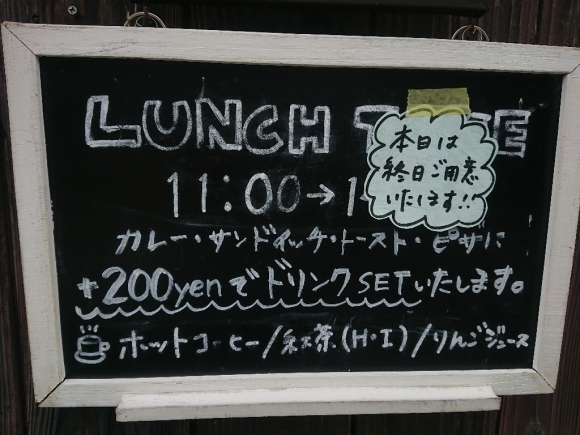 LUNCH T E
11:00→1
本日は
終日ご用意
いたします!!
カレー・サンドイッチ・トースト・ピザに
+200yenでドリンクSETいたします。
ホットコーヒー/紅茶(H・I)/りんごジュース